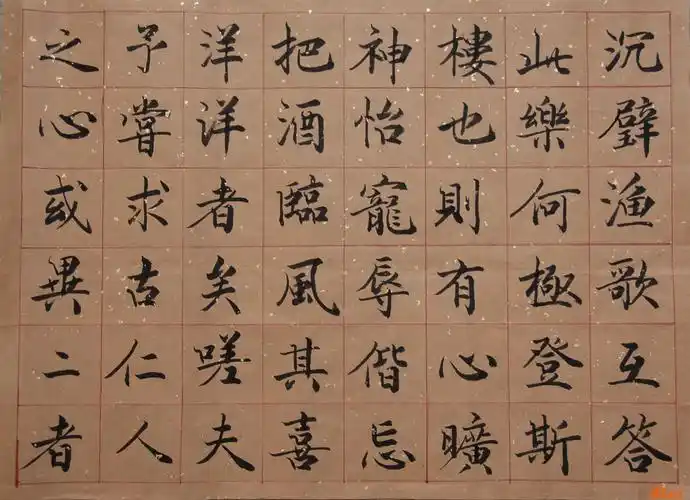 沉璧渔歌互答
此樂何極登斯
樓也則有心曠
神怡寵辱偕忘
把酒臨風其喜
洋洋者矣嗟夫
予嘗求古仁人
之心或異二者